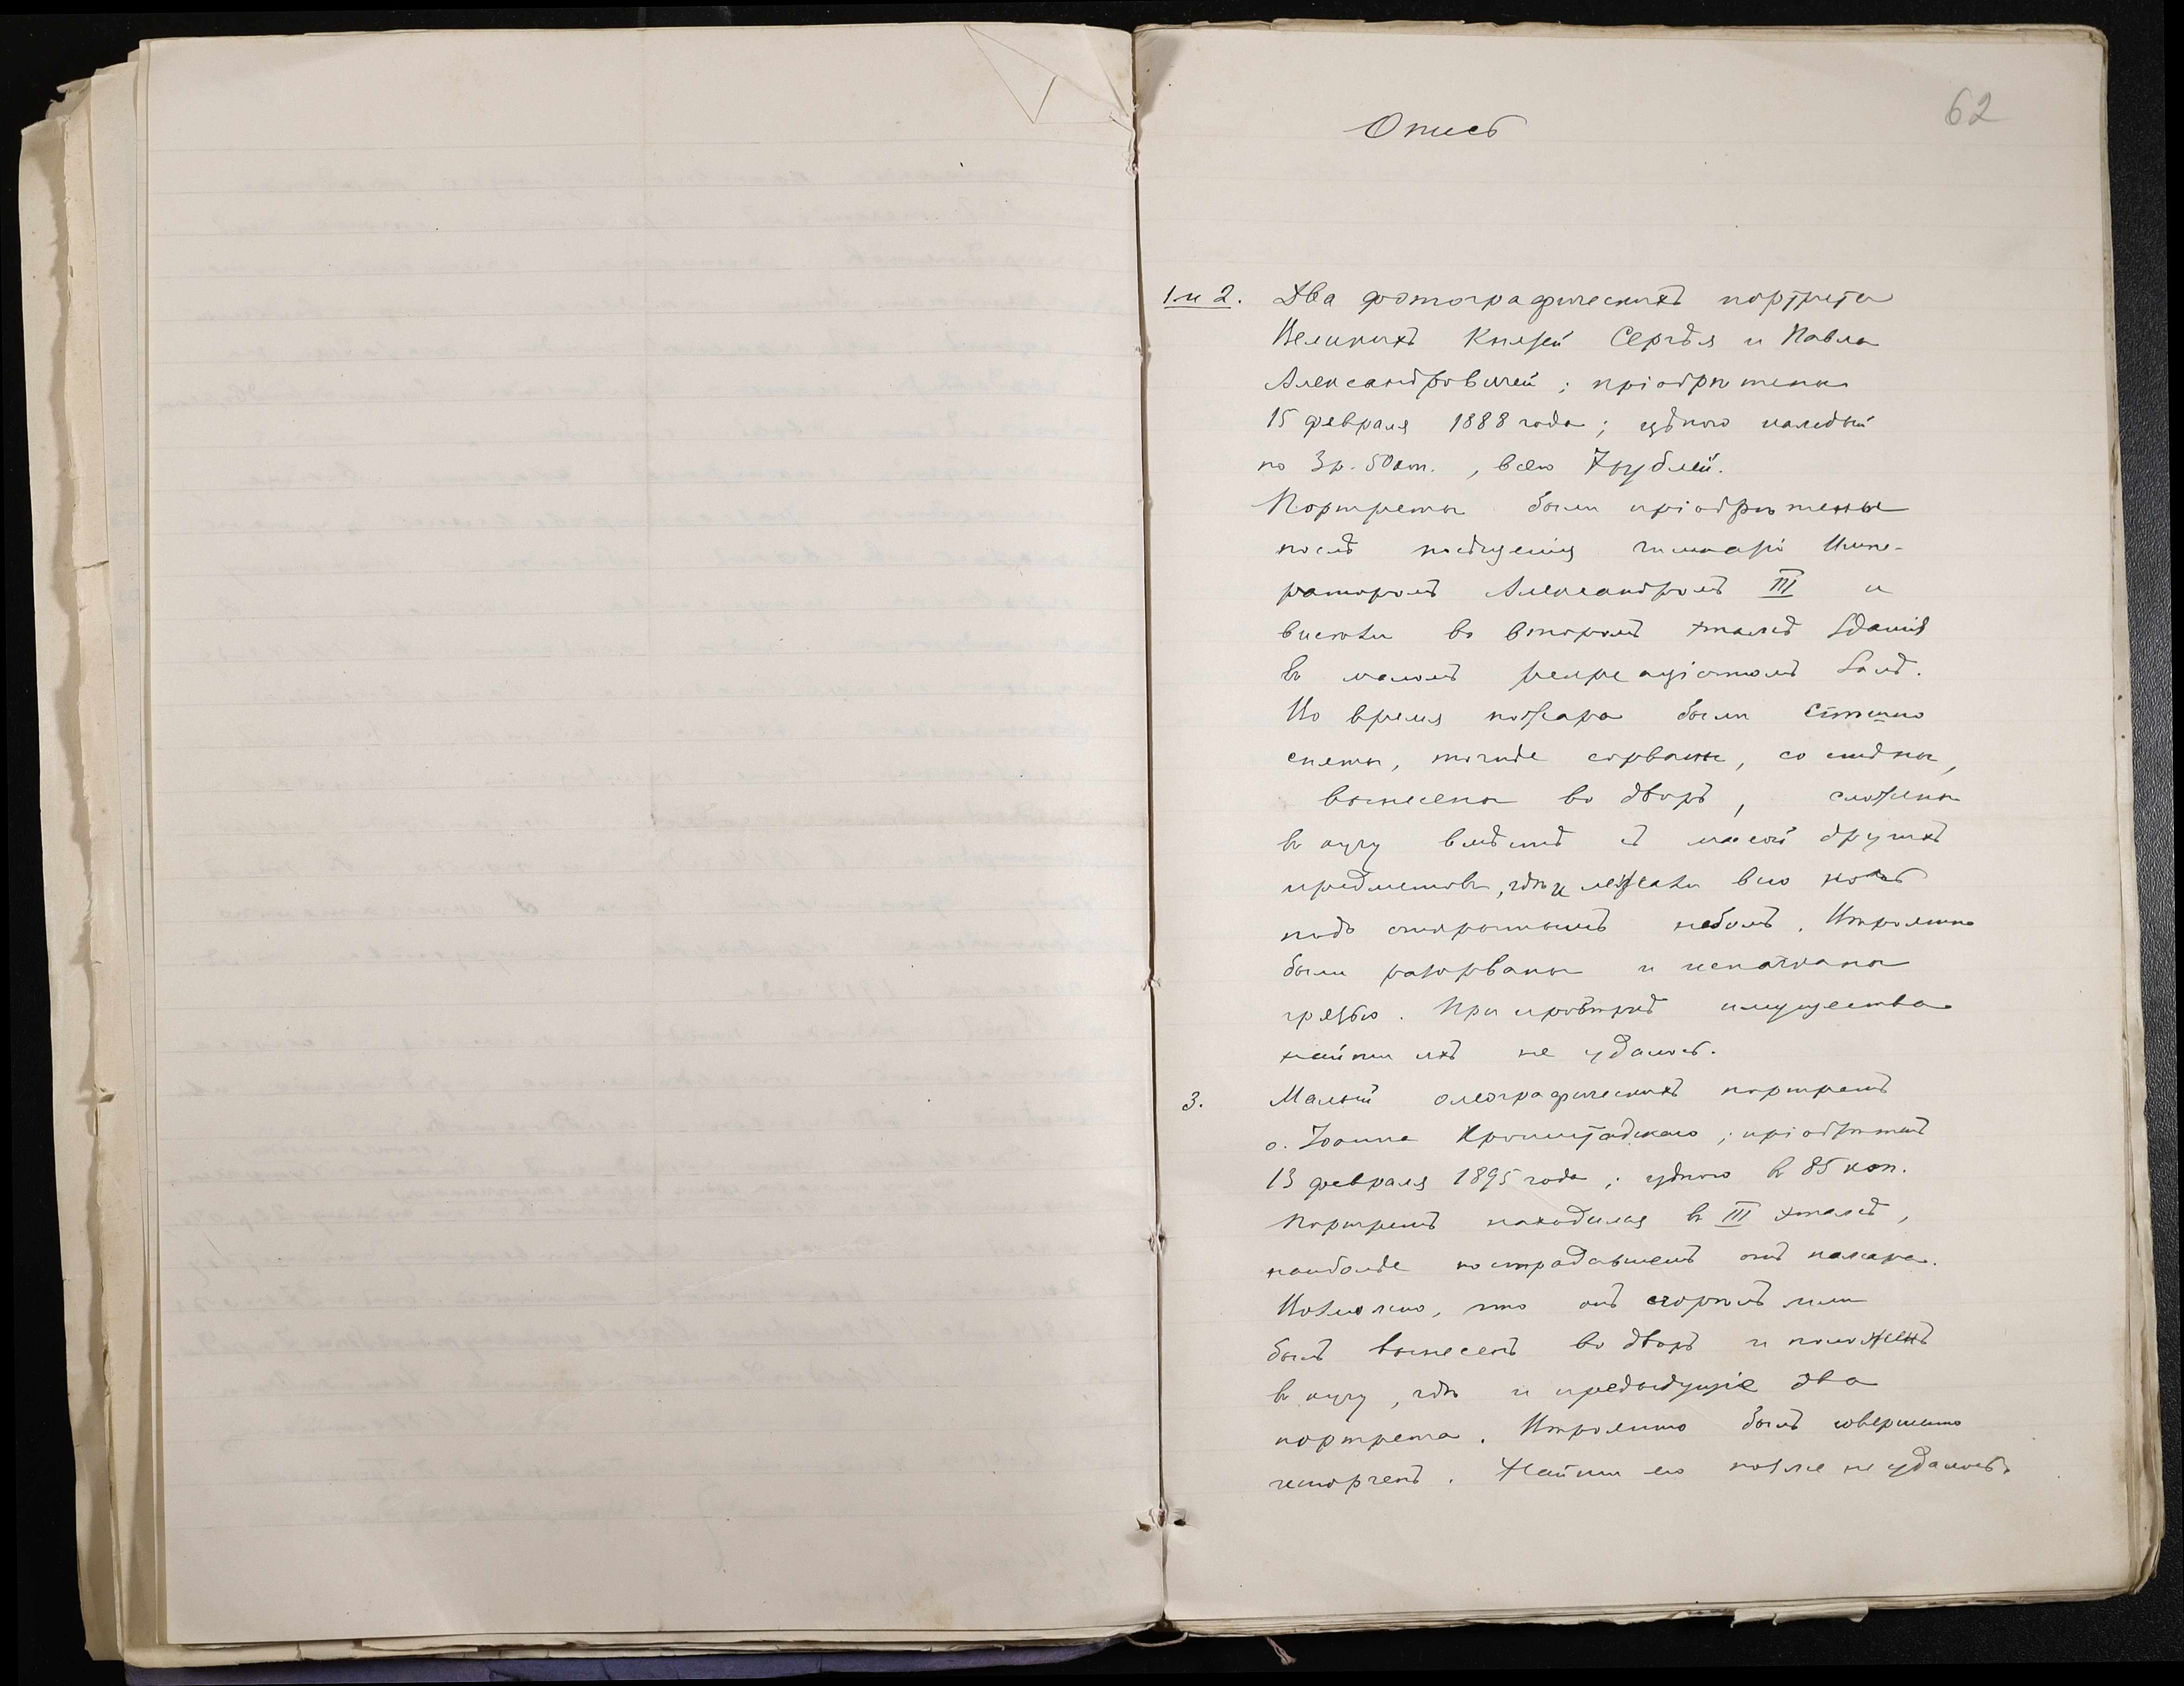 62
Опись
1 и 2. Два фотографическихъ портрета
Великихъ Князей Сергѣя и Павла
Александровичей; пріобрѣтены
15 февраля 1888 года; цѣною каждый
по 3 р. 50 коп., всего 7 рублей.
Портреты были пріобрѣтены
послѣ посѣщенія гимназіи Импе-
раторомъ Александромъ III и
висѣли во второмъ этажѣ зданія
въ маломъ рекреаціонномъ залѣ.
Во время пожара были спѣшно
сняты, точнѣе сорваны, со стѣны,
вынесены во дворъ, сложены
въ кучу вмѣстѣ съ массой другихъ
предметовъ, гдѣ и лежали всю ночь
подъ открытымъ небомъ. Вѣроятно
были разорваны и испачканы
грязью. При провѣркѣ имущества
найти ихъ не удалось.
3. Малый олеографическихъ портретъ
о. Іоанна Кронштадскаго; пріобрѣтенъ
13 февраля 1895 года; цѣною въ 85 коп.
Портретъ находился въ III этажѣ,
наиболѣе пострадавшемъ отъ пожара.
Возможно, что онъ сгорѣлъ или
былъ вынесенъ во дворъ и положенъ
въ кучу, гдѣ и предыдущіе два
портрета. Вѣроятно былъ совершенно
испорченъ. Найти его позже не удалось.